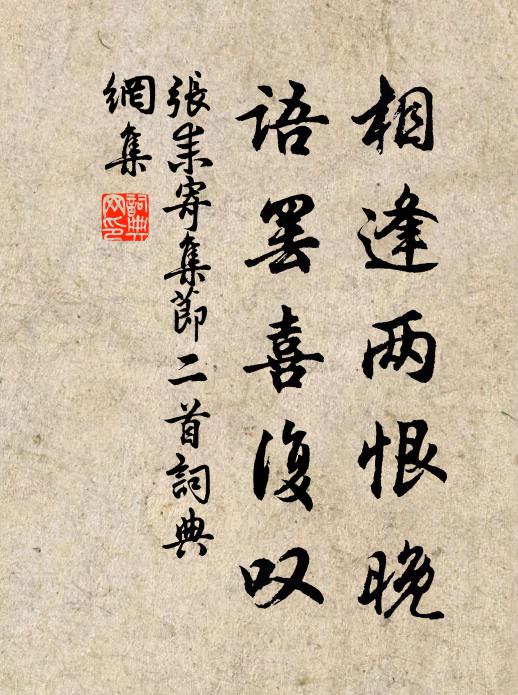 相逢两恨晚
語罢喜復叹
張耒寄集莭二首詞典
網集
詞典
网印